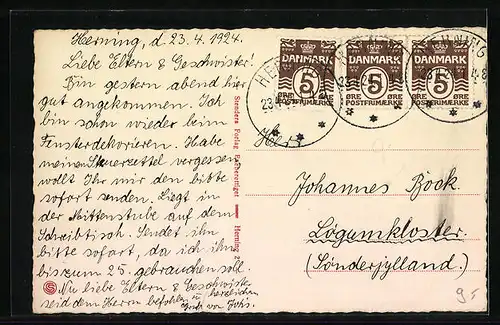 Herning, d 23.4.1924.
Liebe Eltern & Geschwister!
Bin gestern abend hier
gut angekommen. Ich
bin schon wieder beim
Fensterdekorieren. Habe
meinen Steuerzettel vergessen
wollt Ihr mir den bitte
sofort senden. Liegt in
der Mittenstube auf dem
Schreibtisch. Sendet ihn
bitte sofort, da ich ihn
bis zum 25. gebrauchen soll.
Nu liebe Eltern & Geschwister
seid dem Herrn befohlen u herzlichen
Gruß von Johs.
Stenders Forlag
Herning
S
HERNING
DANMARK
5
ØRE ØRE
POSTFRIMÆRKE
DANMARK
5
ØRE ØRE
POSTFRIMÆRKE
DANMARK
5
ØRE ØRE
POSTFRIMÆRKE
Johannes Bock.
Løgumkloster.
(Sønderjylland.)